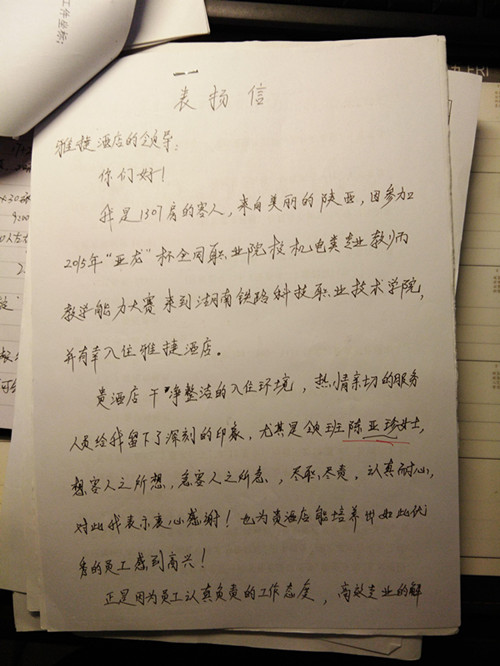 工件坐标:
表扬信
雅捷酒店的领导:
你们好!
我是1307房的客人，来自美丽的陕西，因参加
2015年“亚龙”杯全国职业院校机电类专业教师
教学能力大赛来到湖南铁路科技职业技术学院，
并有幸入住雅捷酒店。
贵酒店干净整洁的入住环境，热情亲切的服务
人员给我留下了深刻的印象，尤其是领班陈亚珍女士，
想客人之所想，急客人之所急，尽职尽责，认真耐心，
对此我表示衷心感谢！也为贵酒店能培养出如此优
秀的员工感到高兴！
正是因为员工认真负责的工作态度，高效专业的解